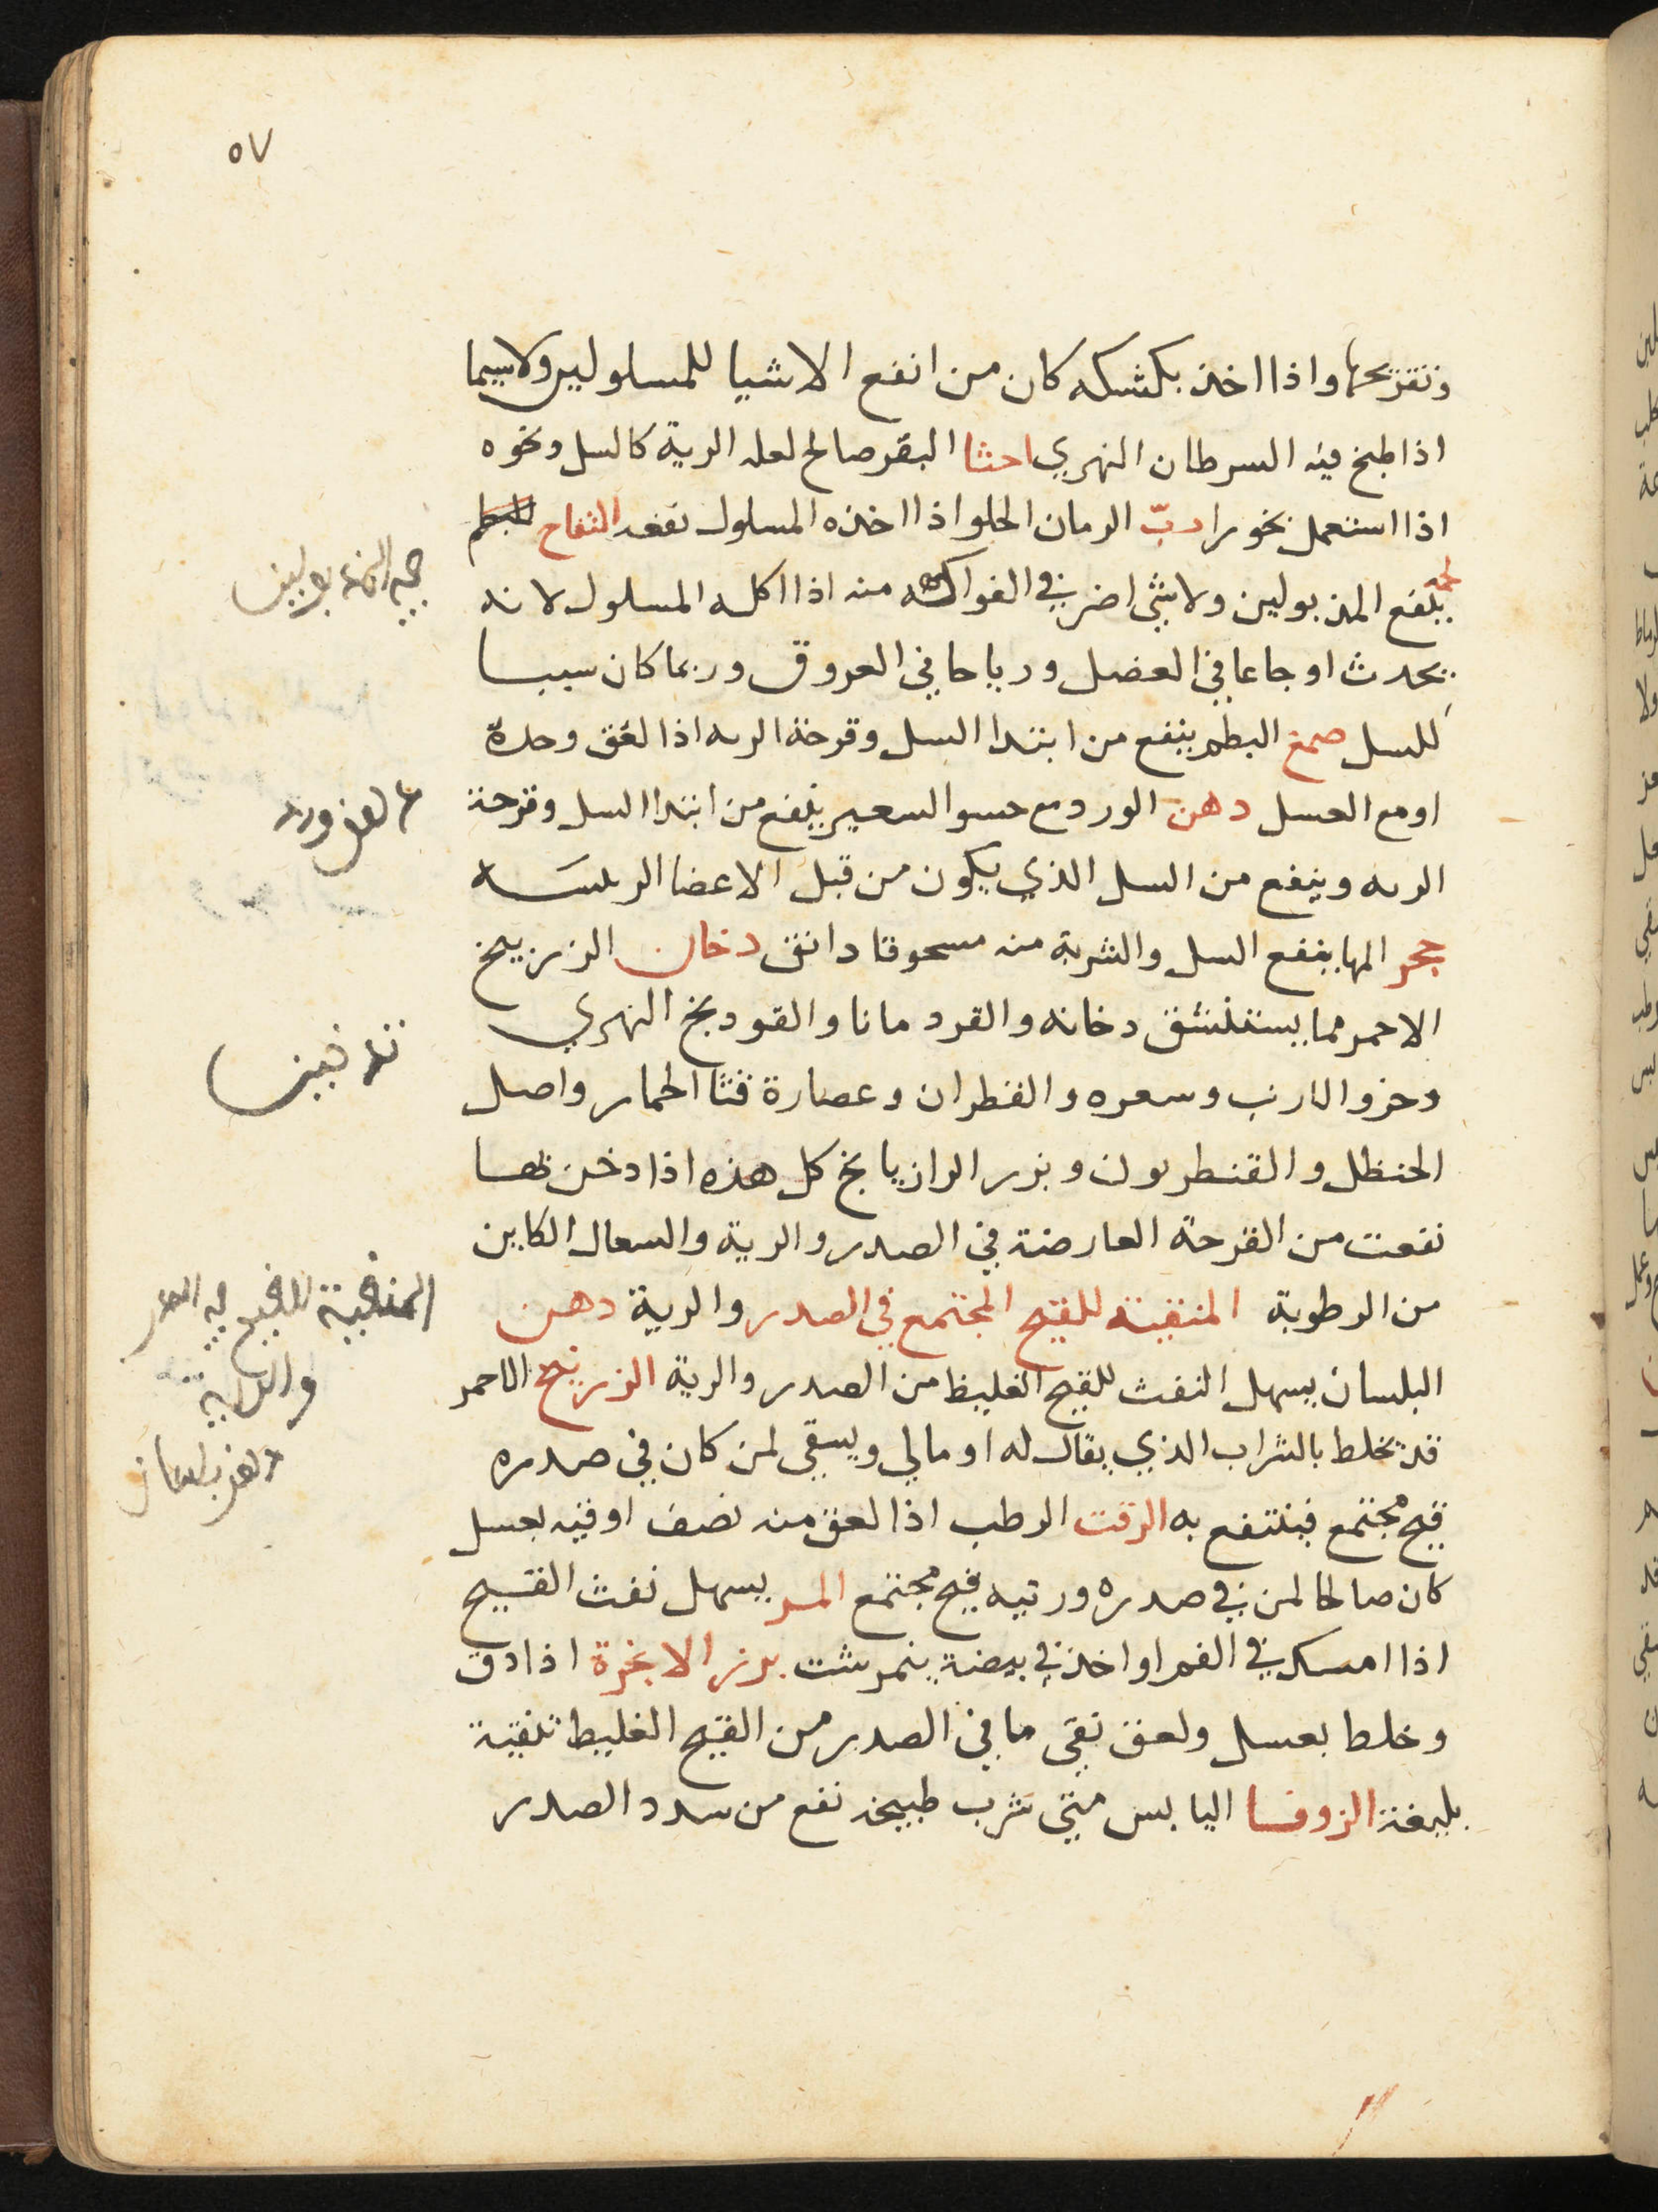 ٥٧
وتقريحها واذا اخذ بكشكه كان من انفع الاشيا للمسلولين ولاسيما
اذا طبخ فيه السرطان النهري احثا البقر صالح لعله الرية كالسل ونحوه
اذا استعمل بخورا ربّ الرمان الحلو اذا اخذه المسلول نفعه التفاح
ينفع المذبولين ولا شي اضر في الفواكه منه اذا اكله المسلول لانه
يحدث اوجاعا في العضل ورياحا في العروق وربما كان سببا
للسل صمغ البطم ينفع من ابتدا السل وقرحة الريه اذا لعق وحدة
او مع العسل دهن الورد مع حسو السعير ينفع من ابتدا السل وقرحة
الريه وينفع من السل الذي يكون من قبل الاعضا الريسه
حجر المها ينفع السل والشربة منه مسحوقا دانق دخان الزرنيخ
الاحمر مما يستنشق دخانه والقردمانا والفودنج النهري
وخرو الارنب وسعره والقطران وعصارة قثا الحمار واصل
الحنظل والقنطريون وبزر الرازيانج كل هذه اذا دخن بها
نفعت من القرحة العارضة في الصدر والرية والسعال الكاين
من الرطوبة المنقية للقيح المجتمع في الصدر والرية دهن
البلسان يسهل النفث للقيح الغليظ من الصدر والرية الزرنيخ الاحمر
قد يخلط بالشراب الذي يقال له اومالي ويسقى لمن كان في صدره
قيح مجتمع فينتفع به الزفت الرطب اذا لعق منه نصف اوقيه بعسل
كان صالحا لمن في صدره وريته قيح مجتمع المر يسهل نفث القيح
اذا امسك في الفم او اخذ في بيضة ينمرشت بزر الانجرة اذا دق
وخلط بعسل ولعق نقى ما في الصدر من القيح الغليظ تنقية
بليغة الزوفا اليابس متى شرب طبيخه نفع من سدد الصدر
المنقية للقيح في الصدر
والرية